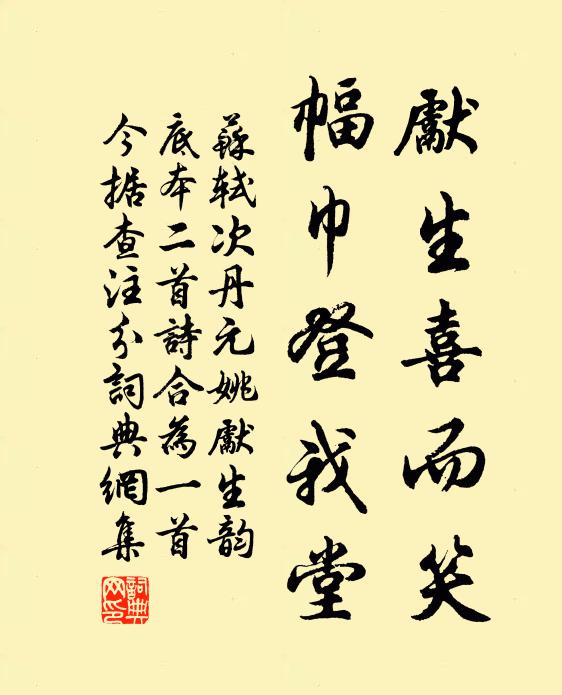 獻生喜而笑
幅巾登我堂
蘇軾次丹元姚獻生韵
底本二首詩合為一首
今据查注分詞典網集
詞典網印